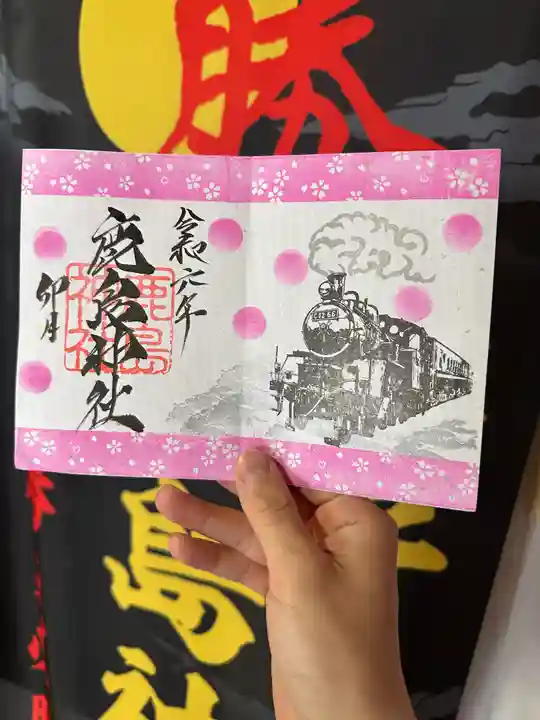 勝
令和六年
鹿島神社
卯月
鹿島神社
C12 66
島社